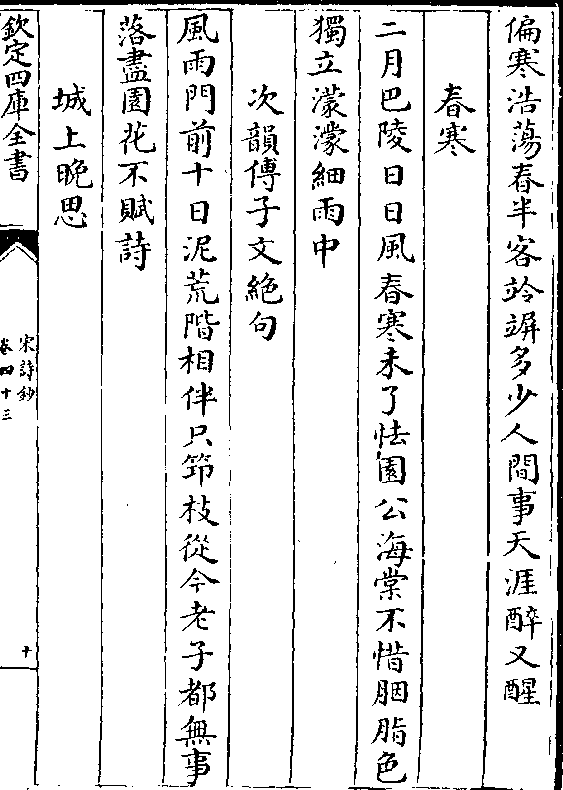 偏寒浩蕩春半客竛竮多少人間事天涯醉又醒
春寒
二月巴陵日日風春寒未了怯園公海棠不惜胭脂色
獨立濛濛細雨中
次韻傅子文絶句
風雨門前十日泥荒階相伴只笻枝從今老子都無事
落盡園花不賦詩
城上晚思
欽定四庫全書
宋詩鈔
卷四十三
十